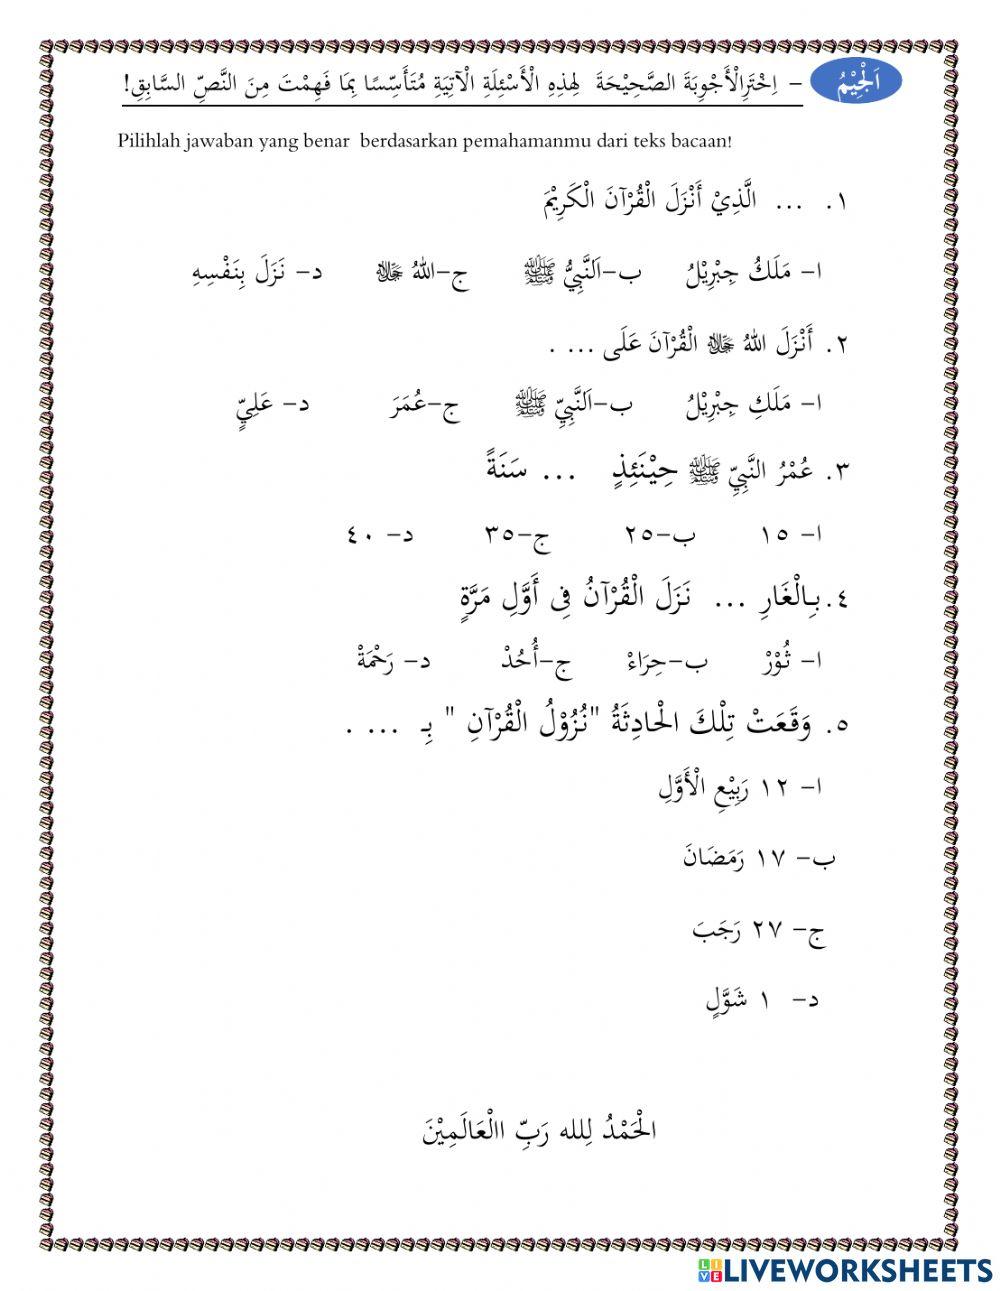 اَلْجِيْمُ – اِخْتَرِالْأَجْوِبَةَ الصَّحِيْحَةَ لِهذِهِ الْأَسْئِلَةِ الْآتِيَةِ مُتَأَسِّسًا بِمَا فَهِمْتَ مِنَ النَّصِّ السَّابِقِ!
Pilihlah jawaban yang benar berdasarkan pemahamanmu dari teks bacaan!
١. ... الَّذِيْ أَنْزَلَ الْقُرْآنَ الْكَرِيْمَ
ا- مَلَكُ جِبْرِيْلُ ب-اَلنَّبِيُّ ﷺ ج-اللهُ ﷻ د- نَزَلَ بِنَفْسِهِ
٢. أَنْزَلَ اللهُ ﷻ الْقُرْآنَ عَلَى ... .
ا- مَلَكِ جِبْرِيْلُ ب-اَلنَّبِيِّ ﷺ ج-عُمَرَ د- عَلِيٍّ
٣. عُمْرُ النَّبِيِّ ﷺ حِيْنَئِذٍ ... سَنَةً
ا- ١٥ ب-٢٥ ج-٣٥ د- ٤٠
٤. بِالْغَارِ ... نَزَلَ الْقُرْآنُ فِى أَوَّلِ مَرَّةٍ
ا- ثُوْرْ ب-حِرَاءْ ج-أُحُدْ د- رَحْمَةْ
٥. وَقَعَتْ تِلْكَ الْحَادِثَةُ "نُزُوْلُ الْقُرْآنِ " بِـ ... .
ا- ١٢ رَبِيْعِ الْأَوَّلِ
ب- ١٧ رَمَضَانَ
ج- ٢٧ رَجَبَ
د- ١ شَوَّلٍ
الْحَمْدُ لِلله رَبِّ االْعَالَمِيْنَ
LIVEWORKSHEETS